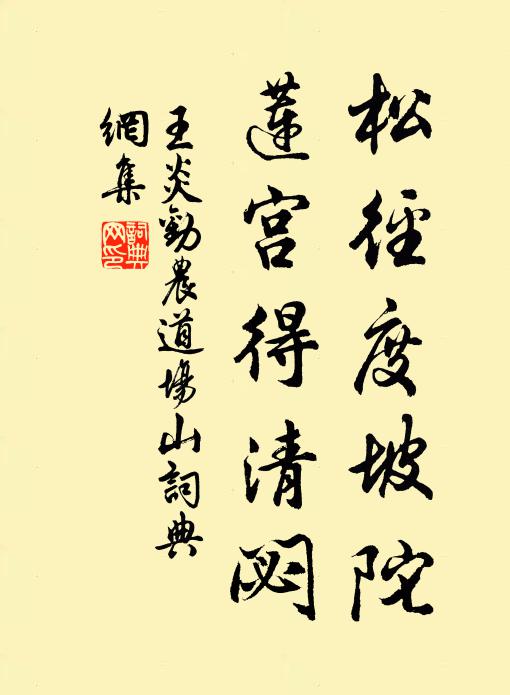 松徑度坡陀
蓮宮得清閟
王炎勸農道場山詞典
網集
詞典網印